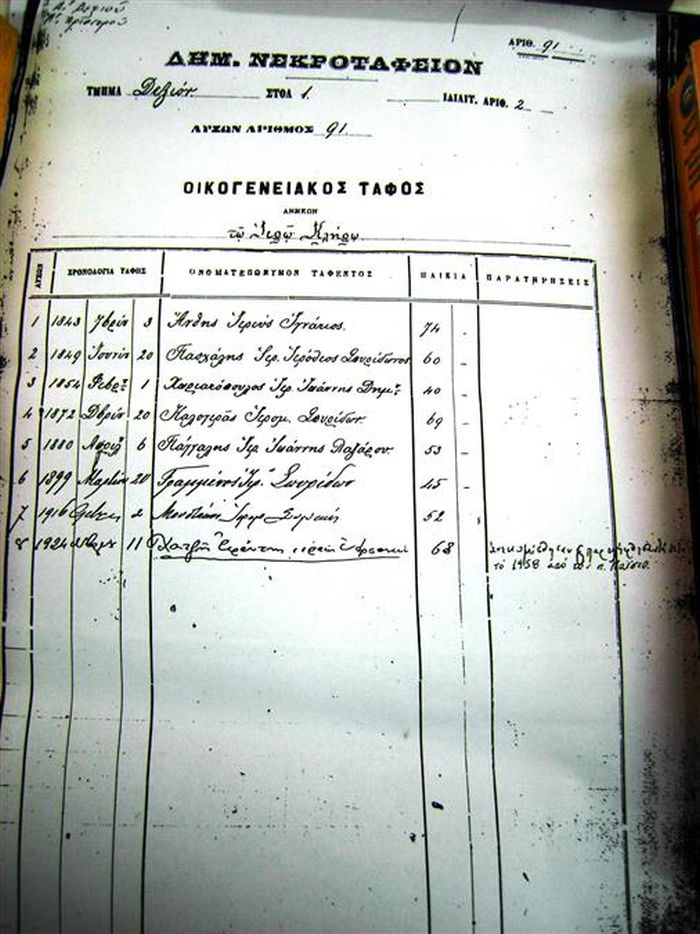 Α. Δεξιοῦ
ΑΡΙΘ. 91
ΔΗΜ. ΝΕΚΡΟΤΑΦΕΙΟΝ
ΤΜΗΜΑ Δεξιόν ΣΤΟΑ 1. ΙΔΙΑΙΤ. ΑΡΙΘ. 2
ΑΥΞΩΝ ΑΡΙΘΜΟΣ 91.
ΟΙΚΟΓΕΝΕΙΑΚΟΣ ΤΑΦΟΣ
ΑΝΗΚΩΝ
τῷ Ἱερῷ Κλήρῳ
ΑΥΞΩΝ ΧΡΟΝΟΛΟΓΙΑ ΤΑΦΗΣ ΟΝΟΜΑΤΕΠΩΝΥΜΟΝ ΤΑΦΕΝΤΟΣ ΗΛΙΚΙΑ ΠΑΡΑΤΗΡΗΣΕΙΣ
1 1843 7βρίου 3 Ἄνθης Ἱερεὺς Ἰγνάτιος. 74 -
2 1849 Ἰουνίου 20 Πασχάλης Ἱερ. Ἱερόθεος Σπυρίδωνος 60 -
3 1854 Φεβρ. 1 Ἱερ Ἰωάννης Δημ. 40 -
4 1872 20 Καλογερᾶς Ἱερομ. Σπυρίδων. 69 -
5 1880 Ἀπριλ 6 Πάγκαλης Ἱερ Ἰωάννης Λαζάρου. 53 -
6 1899 Μαρτίου 20 Γραμμένος Ἱερ. Σπυρίδων 45 -
7 1916 2 52
8 1924 11 Χατζῆ 68
τὸ 1958 ἀπὸ τὸν π. Παΐσιο.